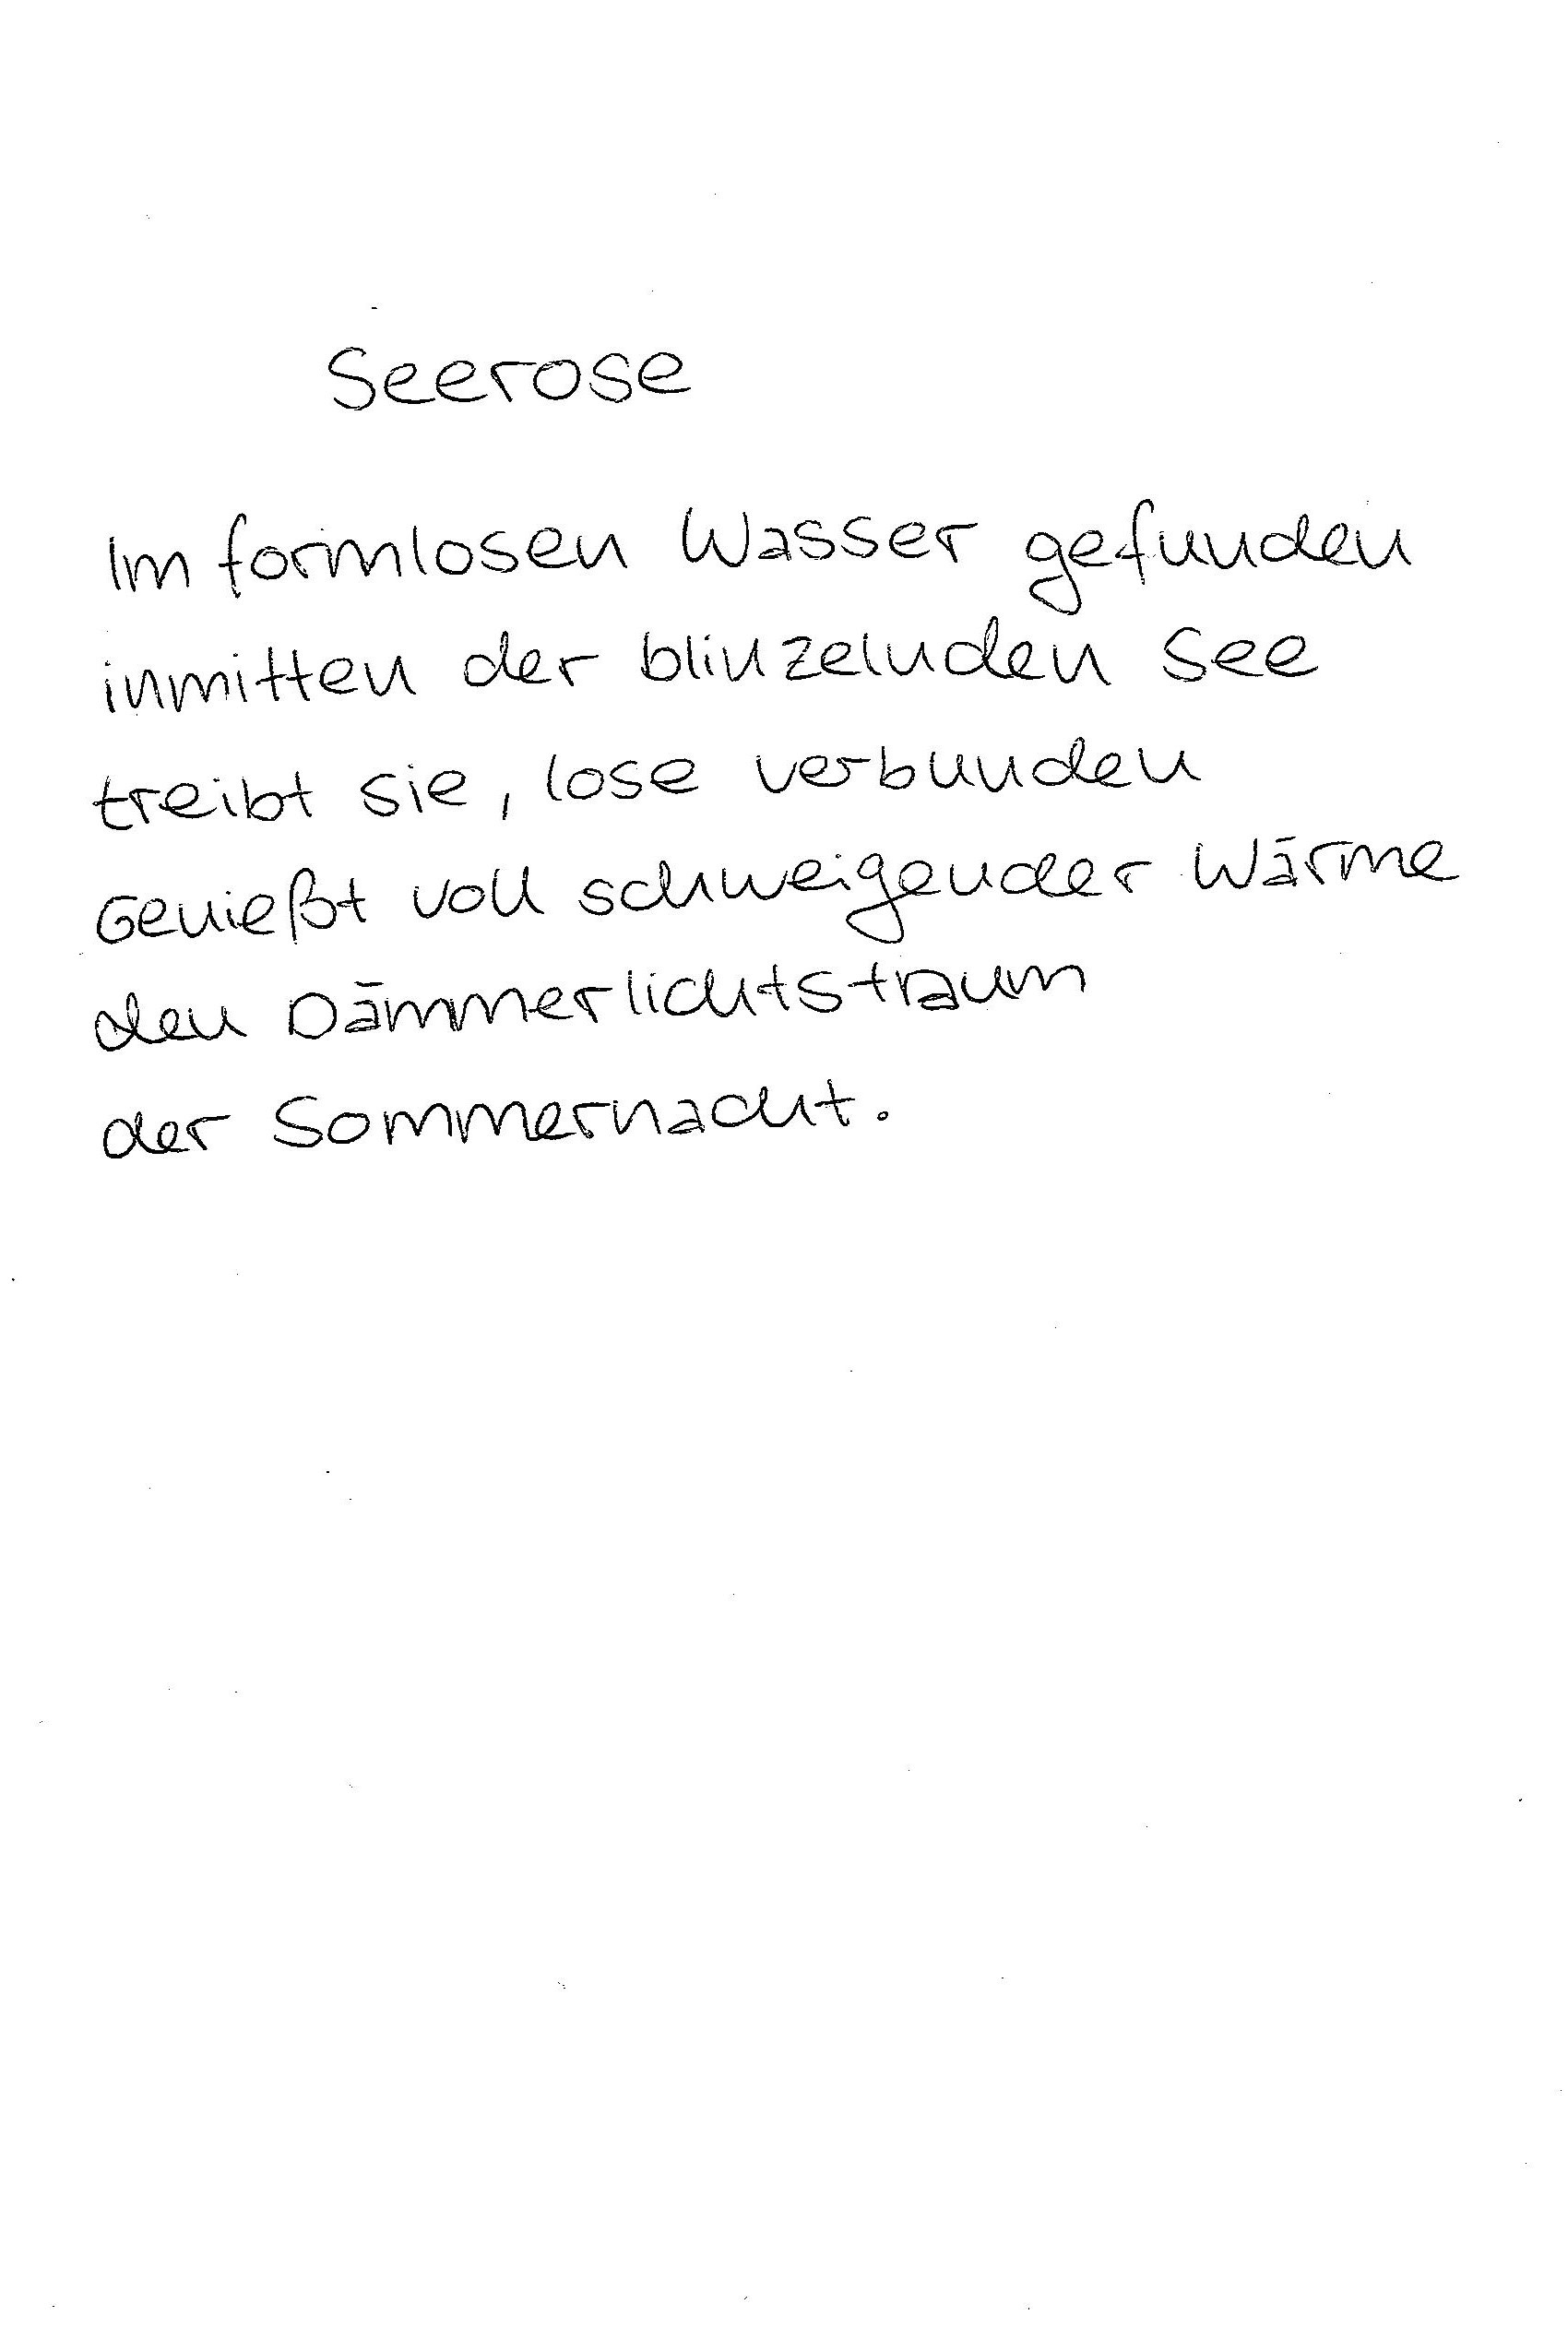 Seerose
Im formlosen Wasser gefunden
inmitten der blinzelnden See
treibt sie, lose verbunden
Genießt voll schweigender Wärme
den Dämmerlichtstraum
der Sommernacht.